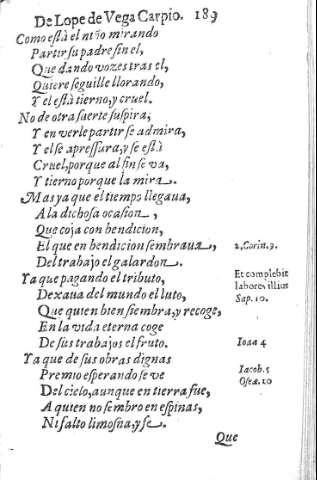 De Lope de Vega Carpio. 189
Como está el niño mirando
Partir su padre sin el,
Que dando vozes tras el,
Quiere seguille llorando,
Y el está tierno, y cruel.
No de otra suerte suspira,
Y en verle partir se admira,
Y el se apressura, y se está
Cruel, porque al fin se va,
Y tierno porque la mira.
Mas ya que el tiempo llegaua,
A la dichosa ocasion,
Que coja con bendicion,
El que en bendicion sembraua, 2, Corin. 9.
Del trabajo el galardon.
Ya que pagando el tributo, Et complebit
Dexaua del mundo el luto, labores illius
Que quien bien siembra, y recoge, Sap. 10.
En la vida eterna coge
De sus trabajos el fruto. Ioan 4
Ya que de sus obras dignas
Premio esperando se ve Iacob. 5
Del cielo, aunque en tierra fue, Oseæ. 10
A quien no sembro en espinas,
Ni falto limosna, y fe.
Que